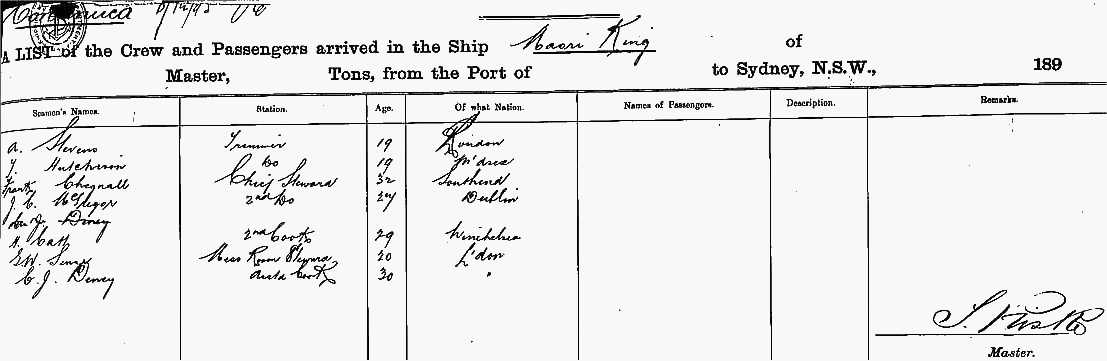 A LIST of the Crew and Passengers arrived in the Ship Maori King of
Master, Tons, from the Port of to Sydney, N.S.W., 189
Seamen's Names. Station. Age. Of what Nation. Names of Passengers. Description. Remarks.
A. Stevens Trimmer 19 London
Hutchinson Do 19
Frank Chegnall Chief Steward 32 Southend
J. C. McGregor 2nd Do 27 Dublin
Dewey
H. Catt 2nd Cook 29 Winchelsea
Mess Room Steward 20 L'don
C. J. Dewey Cook 30 "
Master.